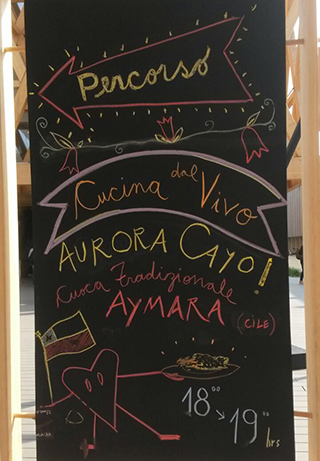 Percorso
Cucina dal Vivo
AURORA CAYO!
Cuoca Tradizionale
AYMARA (CILE)
18°° → 19°°
hrs